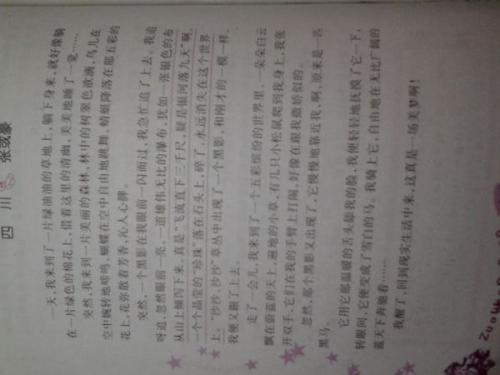 四川
张或豪
一天,我来到了一片绿油油的草地上,躺下身来,就好像躺
在一片绿色的棉花上,借着这里的清幽,美美地睡了一觉……
突然,我来到一片美丽的森林,林中的树翠色欲滴,鸟儿在
空中婉转地啼鸣,蝴蝶在空中自由地跳舞,蜻蜓降落在那五彩的
花上,花弥散着芳香,沁人心脾。
突然,一个黑影在我眼前一闪而过,我急忙追了上去。我追
呀追,忽然眼前一亮,一道雄伟无比的瀑布,犹如一张银色的布
从山上倾泻下来,真是“飞流直下三千尺,疑是银河落九天”啊。
一个个晶莹的“珍珠”落在石头上,碎了,永远消失在这个世界
上。“沙沙,沙沙”草丛中出现了一个黑影,和刚才的一模一样。
我便又跟了上去。
走了一会儿,我来到了一个五彩缤纷的世界里,一朵朵白云
飘在蔚蓝的天上,遍地的小草,有几只小松鼠爬到我身上,我张
开双手,它们在我的手臂上打闹,好像在跟我撒娇似的。
忽然,那个黑影又出现了,它慢慢地靠近我,啊,原来是一匹
黑马。
它用它那温暖的舌头舔我的脸,我便轻轻地抚摸了它一下,
转眼间,它便变成了雪白的马。我骑上它,自由地在无比广阔的
蓝天下奔驰着……
我醒了,回到现实生活中来,这真是一场美梦啊!